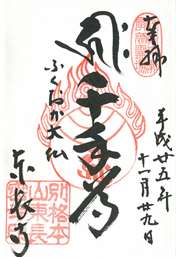 奉拝
平成廿五年
十一月廿九日
千手尊
ふくおか大仏
東長寺
別格本
山東長